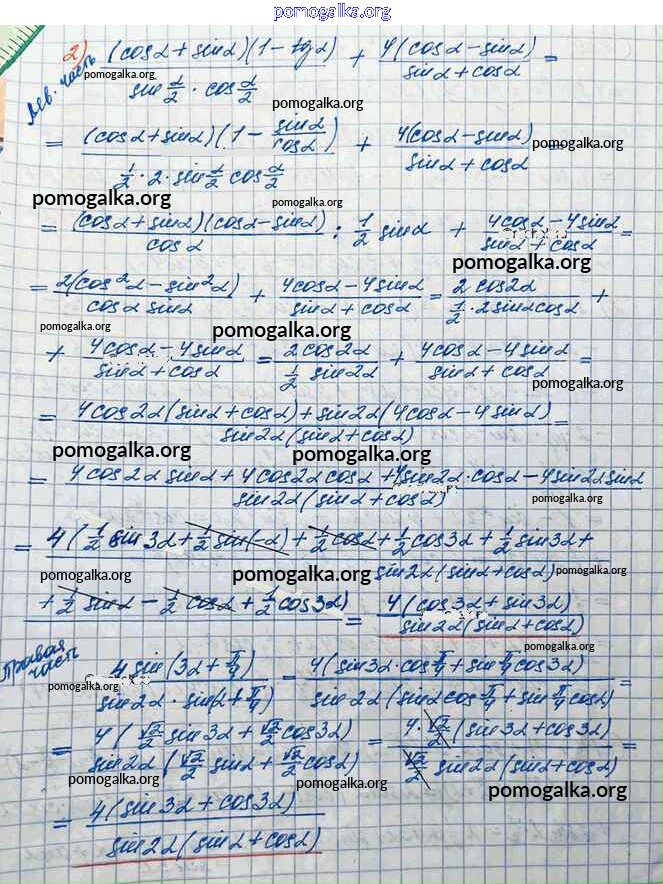 pomogalka.org
2) (cosα + sinα)(1 - tgα) / sin α/2 · cos α/2 + 4(cosα - sinα) / sinα + cosα =
лев. часть
pomogalka.org
pomogalka.org
pomogalka.org
= (cosα + sinα)(1 - sinα/cosα) / 1/2 · 2 · sin α/2 cos α/2 + 4(cosα - sinα) / sinα + cosα =
pomogalka.org
pomogalka.org
= (cosα + sinα)(cosα - sinα) / cosα : 1/2 sinα + 4cosα - 4sinα / sinα + cosα =
pomogalka.org
= 2(cos²α - sin²α) / cosα sinα + 4cosα - 4sinα / sinα + cosα = 2cos2α / 1/2 · 2sinαcosα +
pomogalka.org
pomogalka.org
+ 4cosα - 4sinα / sinα + cosα = 2cos2α / 1/2 sin2α + 4cosα - 4sinα / sinα + cosα =
pomogalka.org
= 4cos2α(sinα + cosα) + sin2α(4cosα - 4sinα) / sin2α(sinα + cosα) =
pomogalka.org
pomogalka.org
= 4cos2α sinα + 4cos2α cosα + 4sin2α · cosα - 4sin2α sinα / sin2α(sinα + cosα) =
pomogalka.org
= 4(1/2 sin3α + 1/2 sin(-α) + 1/2 cosα + 1/2 cos3α + 1/2 sin3α +
sin2α(sinα + cosα)
pomogalka.org
pomogalka.org
pomogalka.org
+ 1/2 sinα - 1/2 cosα + 1/2 cos3α) = 4(cos3α + sin3α) / sin2α(sinα + cosα)
pomogalka.org
Правая часть
4 sin(3α + π/4) / sin2α · sin(α + π/4) = 4(sin3α · cos π/4 + sin π/4 cos3α) / sin2α(sinα cos π/4 + sin π/4 cosα) =
pomogalka.org
pomogalka.org
= 4(√2/2 sin3α + √2/2 cos3α) / sin2α(√2/2 sinα + √2/2 cosα) = 4 · √2/2 (sin3α + cos3α) / √2/2 sin2α(sinα + cosα) =
pomogalka.org
pomogalka.org
pomogalka.org
= 4(sin3α + cos3α) / sin2α(sinα + cosα)